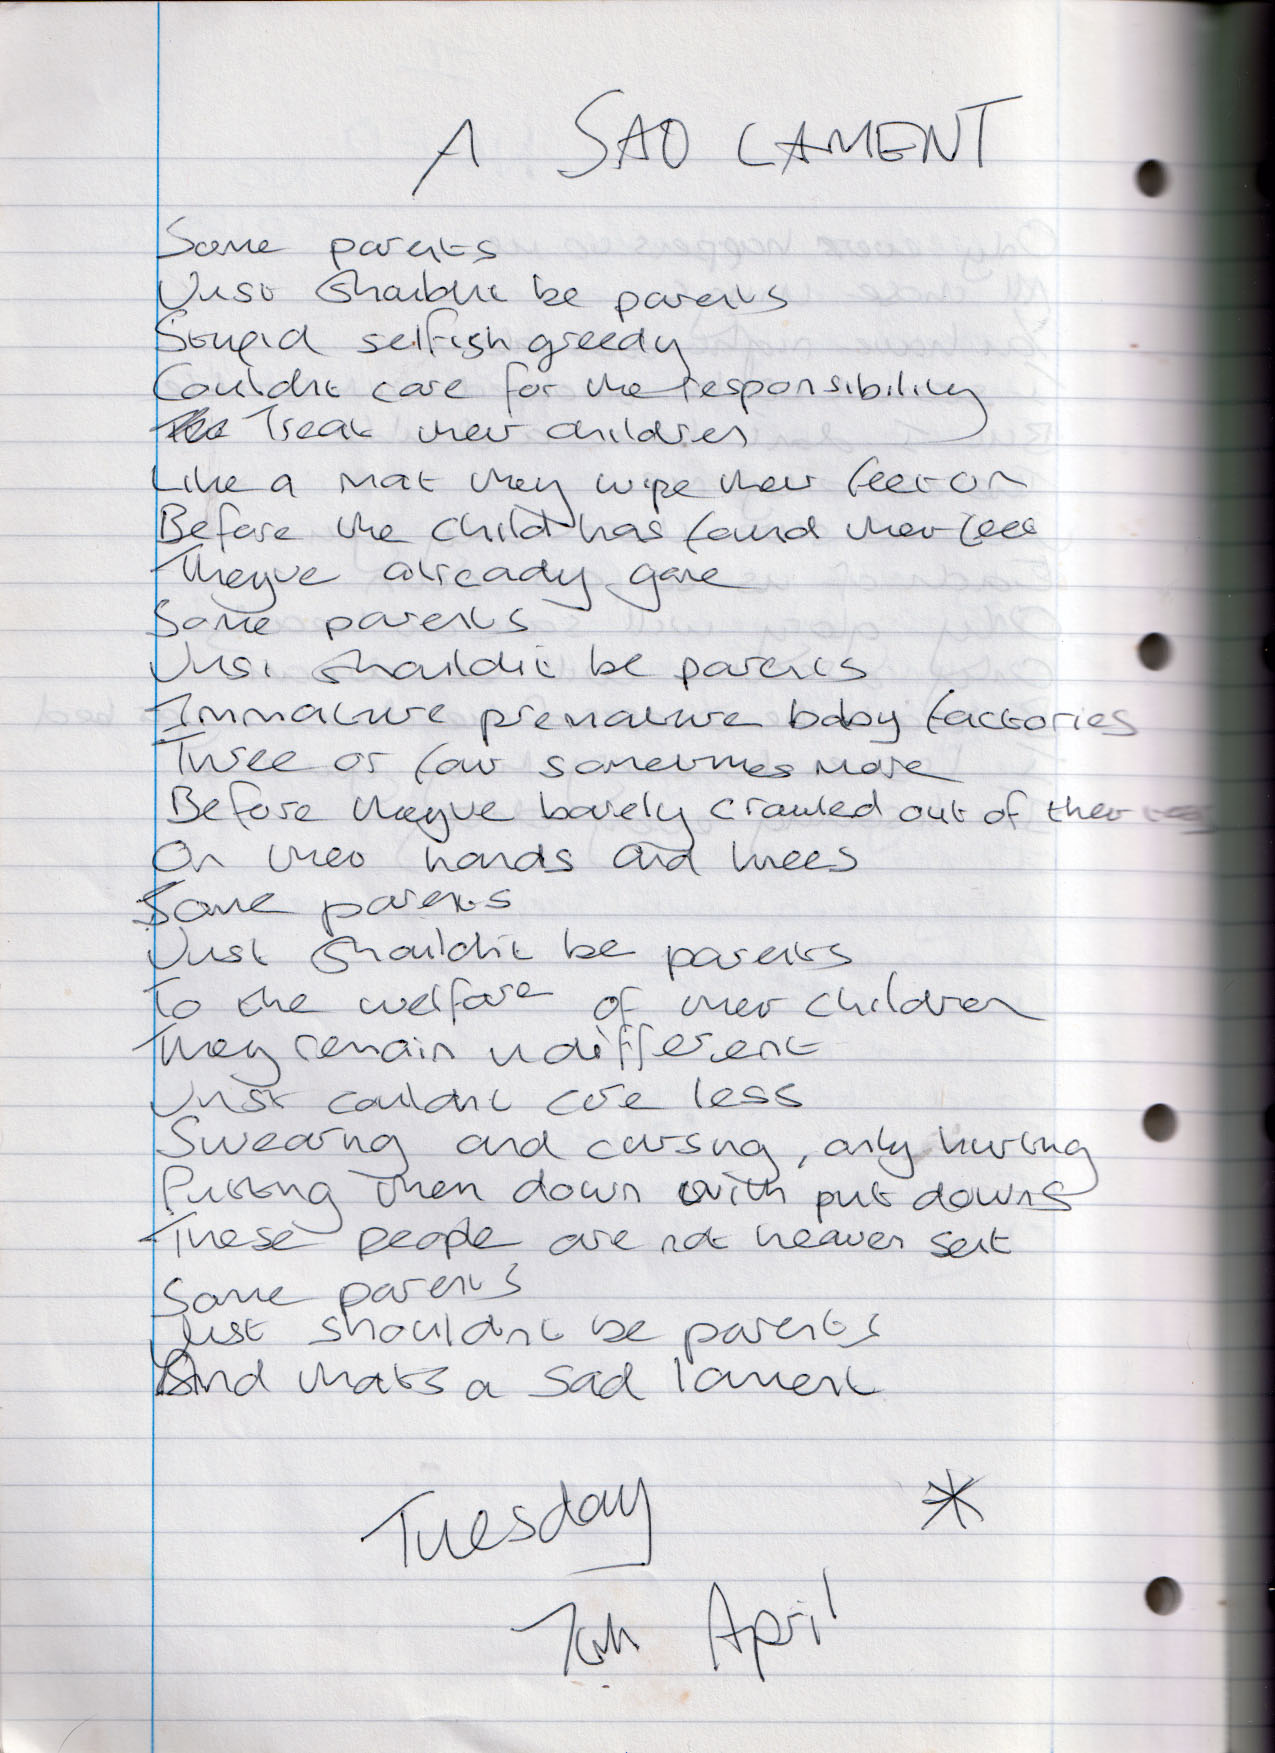 A SAD LAMENT
Some parents
Just shouldnt be parents
Stupid selfish greedy
Couldnt care for the responsibility
Treat their children
Like a mat they wipe their feet on
Before the child has found their feet
Theyve already gone
Some parents
Just shouldnt be parents
Immature premature baby factories
Three or four sometimes more
Before theyve barely crawled out of their teens
On their hands and knees
Some parents
Just shouldnt be parents
To the welfare of their children
They remain indifferent
Just couldnt care less
Swearing and cursing, only hurting
Putting them down with put downs
These people are not heaven sent
Some parents
Just shouldnt be parents
And thats a sad lament
Tuesday *
7th April